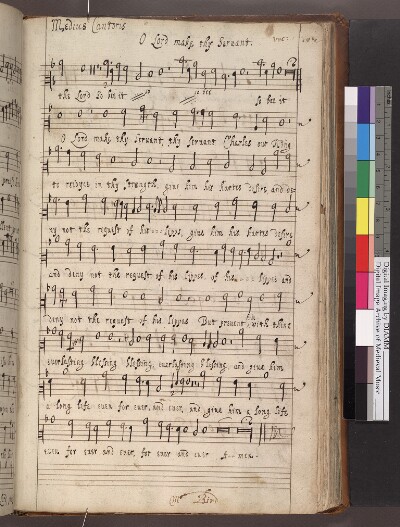 Medius Cantoris
O Lord make thy Servant.
the Lord So be it So be it
O Lord make thy Servant, thy servant Charles our King
to reioyce in thy strength, give him his hartes desire, and de
ny not the request of his lipps, give him his hartes desire
and deny not the request of his lippes, of his lippes and
deny not the request of his lippes But prevent him with thine
everlasting blessing blessing, everlasting blessing, and give him
a long life even for ever, and ever, and give him a long life
even for ever and ever, for ever and ever A - men.
Mr Bird
Digital Imaging by DIAMM
Digital Image Archive of Medieval Music